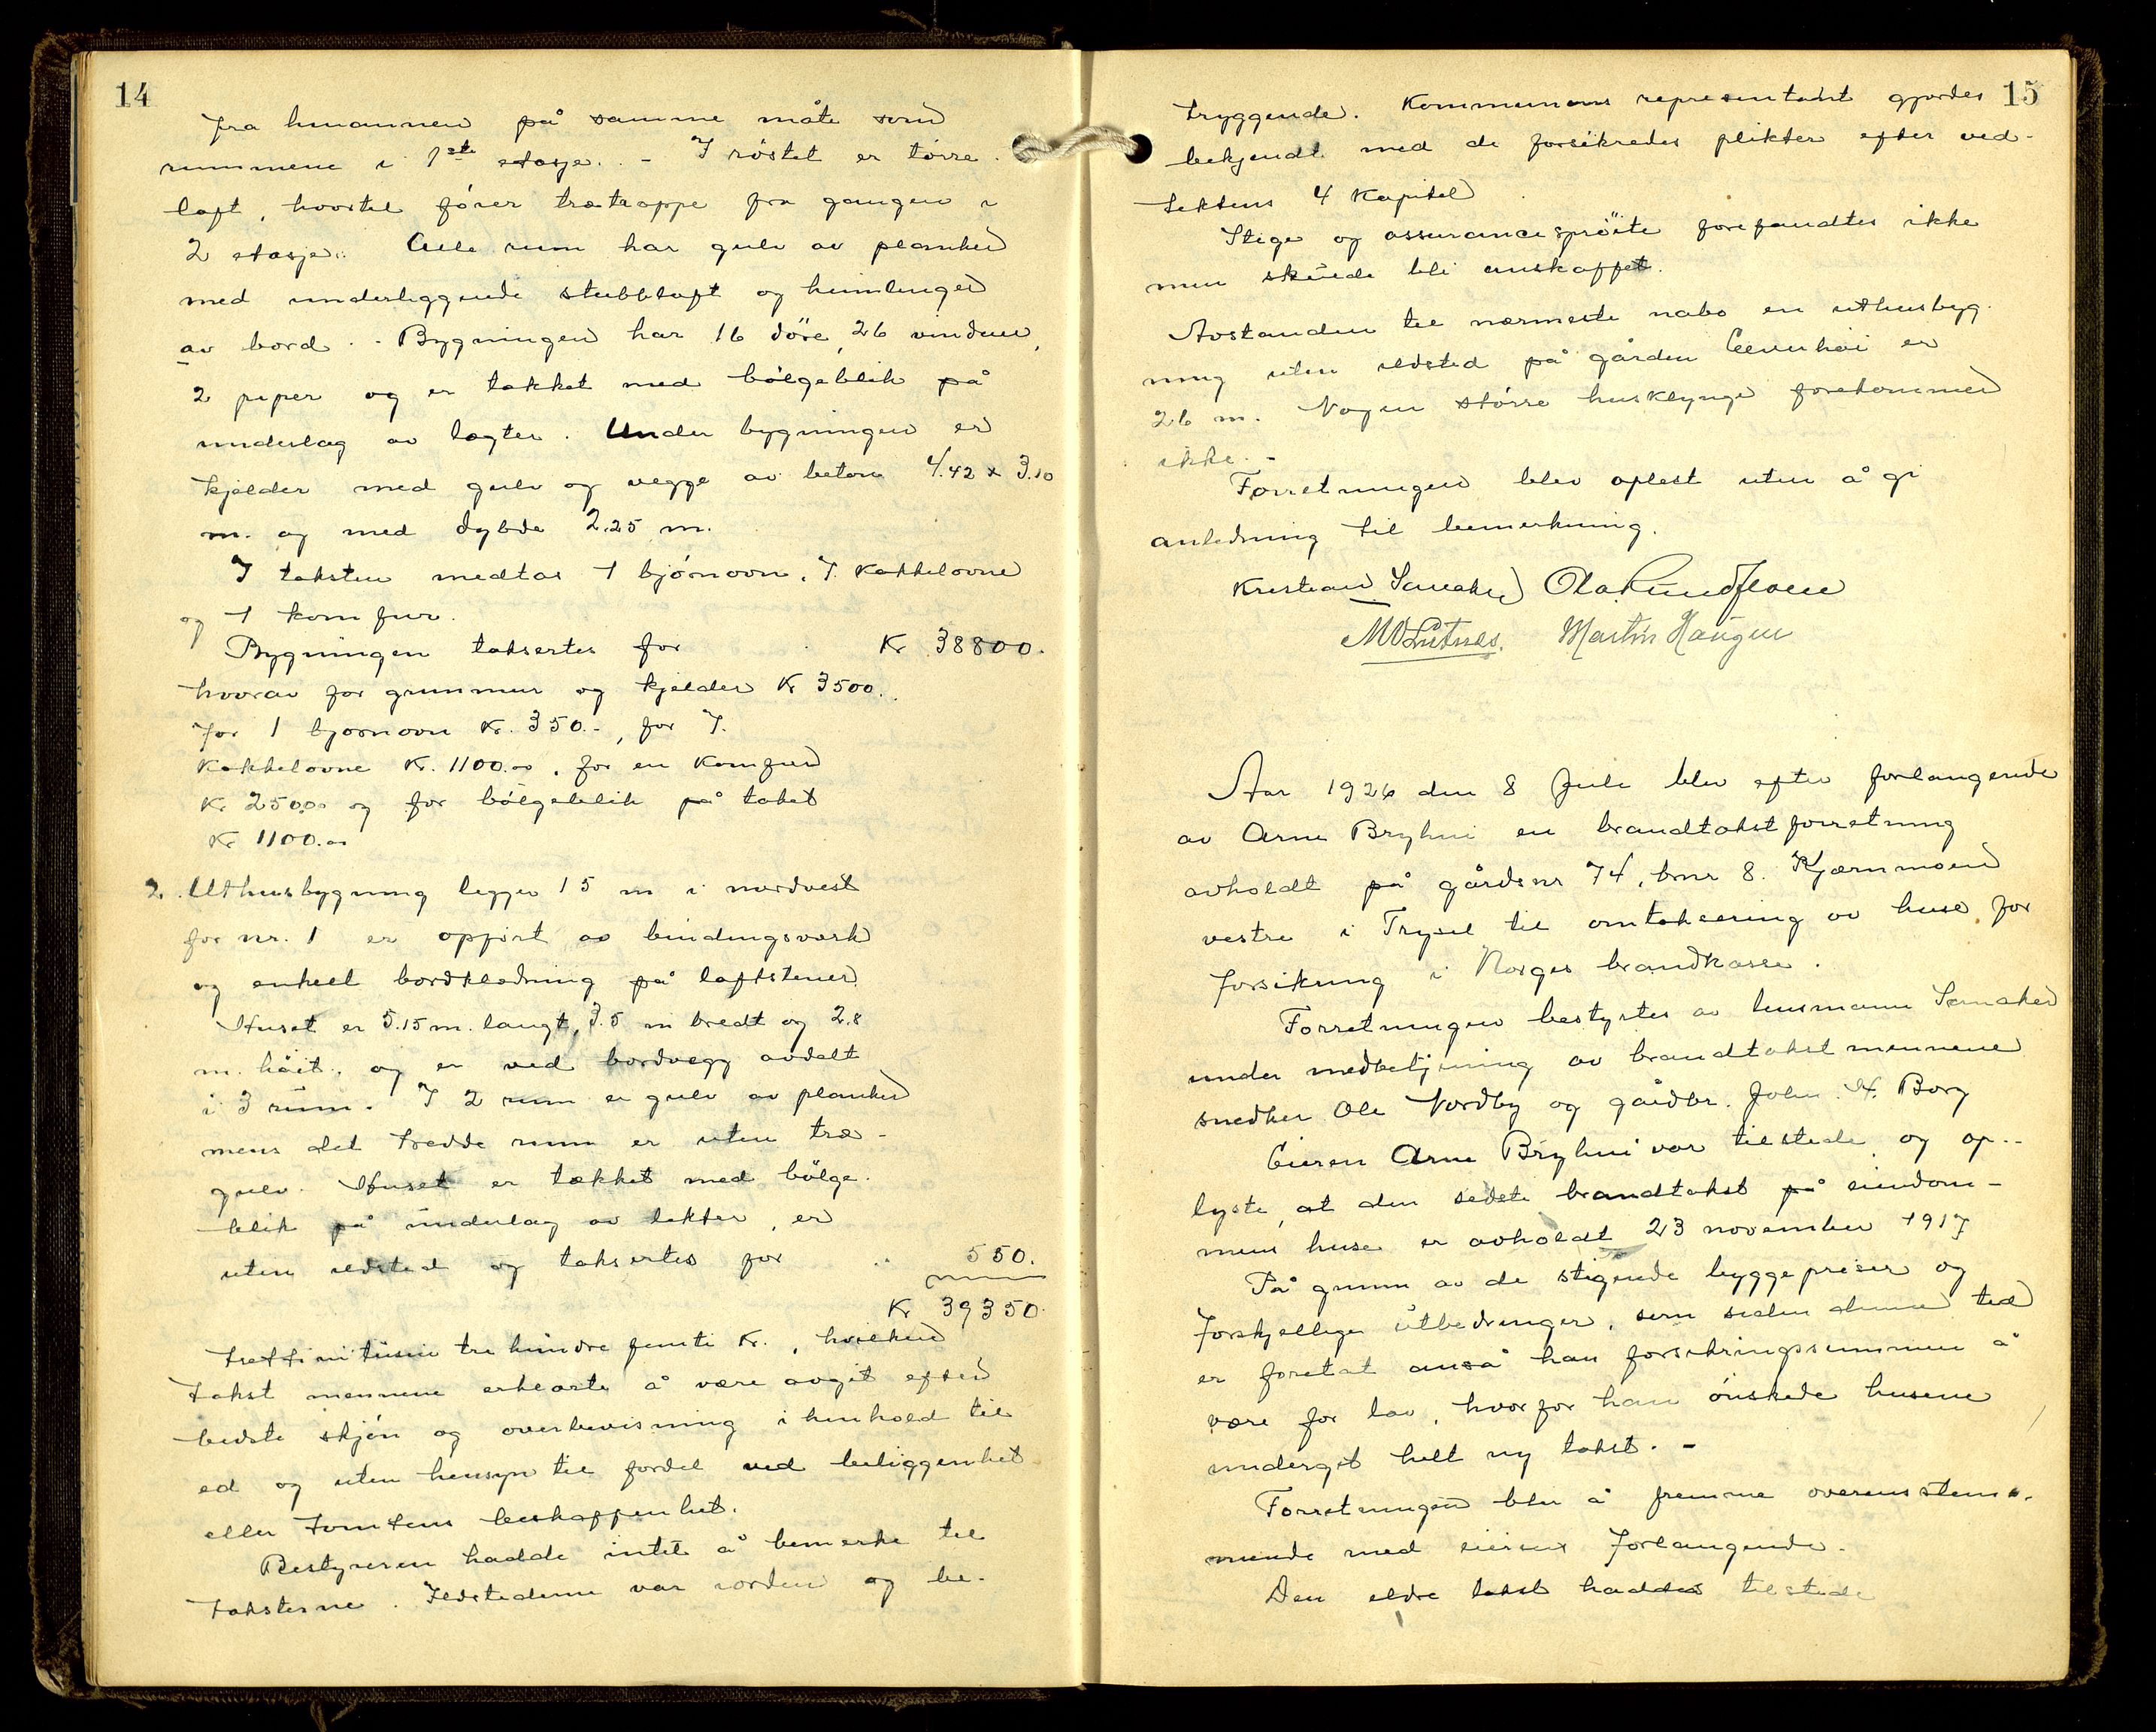 14
fra hinannen på samme måte som
rummene i 1ste etasje. - I röstet er törre
loft, hvortil förer trætrappe fra gangen i
2 etasje. Alle rum har gulv av planker
med underliggende stubbloft og himlinger
av bord. - Bygningen har 16 döre, 26 vinduer,
2 piper og er tækket med bölgeblik på
underlag av lægter. Under bygningen er
kjelder med gulv og vegge av beton 4.42 x 3.10
m. og med dybde 2.25 m.
I taksten medtas 1 bjørnovn, 7 kakkelovne
og 1 komfur.
Bygningen taksertes for Kr 38800.
hvorav for grunmur og kjelder Kr 3500.
For 1 bjørnovn Kr. 350.-, for 7.
kakkelovne Kr. 1100.00, for en komfur
Kr 250.00 og for bölgeblik på taket
Kr 1100.00
2. Uthusbygning ligger 15 m i nordvest
for nr. 1 er opført av bindingsverk
og enkelt bordklædning på loftstener
Huset er 5.15 m. langt, 3.5 m bredt og 2.8
m. höit, og er ved bordvegg avdelt
i 3 rum. I 2 rum er gulv av planker
mens det tredde rum er uten træ-
gulv. Huset er tækket med bölge-
blik på underlag av lekter, er
uten ildsted og taksertes for .. 550.
Kr 39350.
trettinitusin tre hundre femti Kr., hvilken
takst mennene erklærte å være avgit efter
bedste skjön og overbevisning i henhold til
ed og uten hensyn til fordel ved beliggenhet
eller tomtens beskaffenhet.
Bestyreren hadde intet å bemerke til
taksterne. Ildstederne var iorden og be-
15
tryggende. Kommunens representant gjordes
bekjendt med de forsikredes plikter efter ved-
tektens 4 Kapitel
Stige og assurancesprøite forefandtes ikke
men skulde bli anskaffet.
Avstanden til nærmeste nabo en uthusbyg-
ning uten ildsted på gården Elvenhöi er
26 m. Nogen större husklynge forekommer
ikke. -
Forretningen blev oplest uten å gi
anledning til bemerkning.
Kristian Ola
Martin Haugen
Aar 1926 den 8 Juli blev efter forlangende
av Arne Bryhni en brandtakstforretning
avholdt på gårdsnr 74, bnr 8. Kjærnmoen
vestre i Trysil til omtaksering av huse for
forsikring i Norges brandkasse.
Forretningen bestyrtes av lensmann
under medbetjening av brandtakstmennene
snedker Ole Nordby og gårdbr. John H. Borg
Eieren Arne Bryhni var tilstede og op-
lyste, at den sidste brandtakst på eiendom-
mens huse er avholdt 23 november 1917
På grunn av de stigende byggepriser og
forskjellige utbedringer, som siden denne tid
er foretat anså han forsikringssummen å
være for lav, hvorfor han önskede husene
undergit helt ny takst. -
Forretningen blev å fremme overensstem-
mende med eierens forlangende.
Den eldre takst haddes tilstede